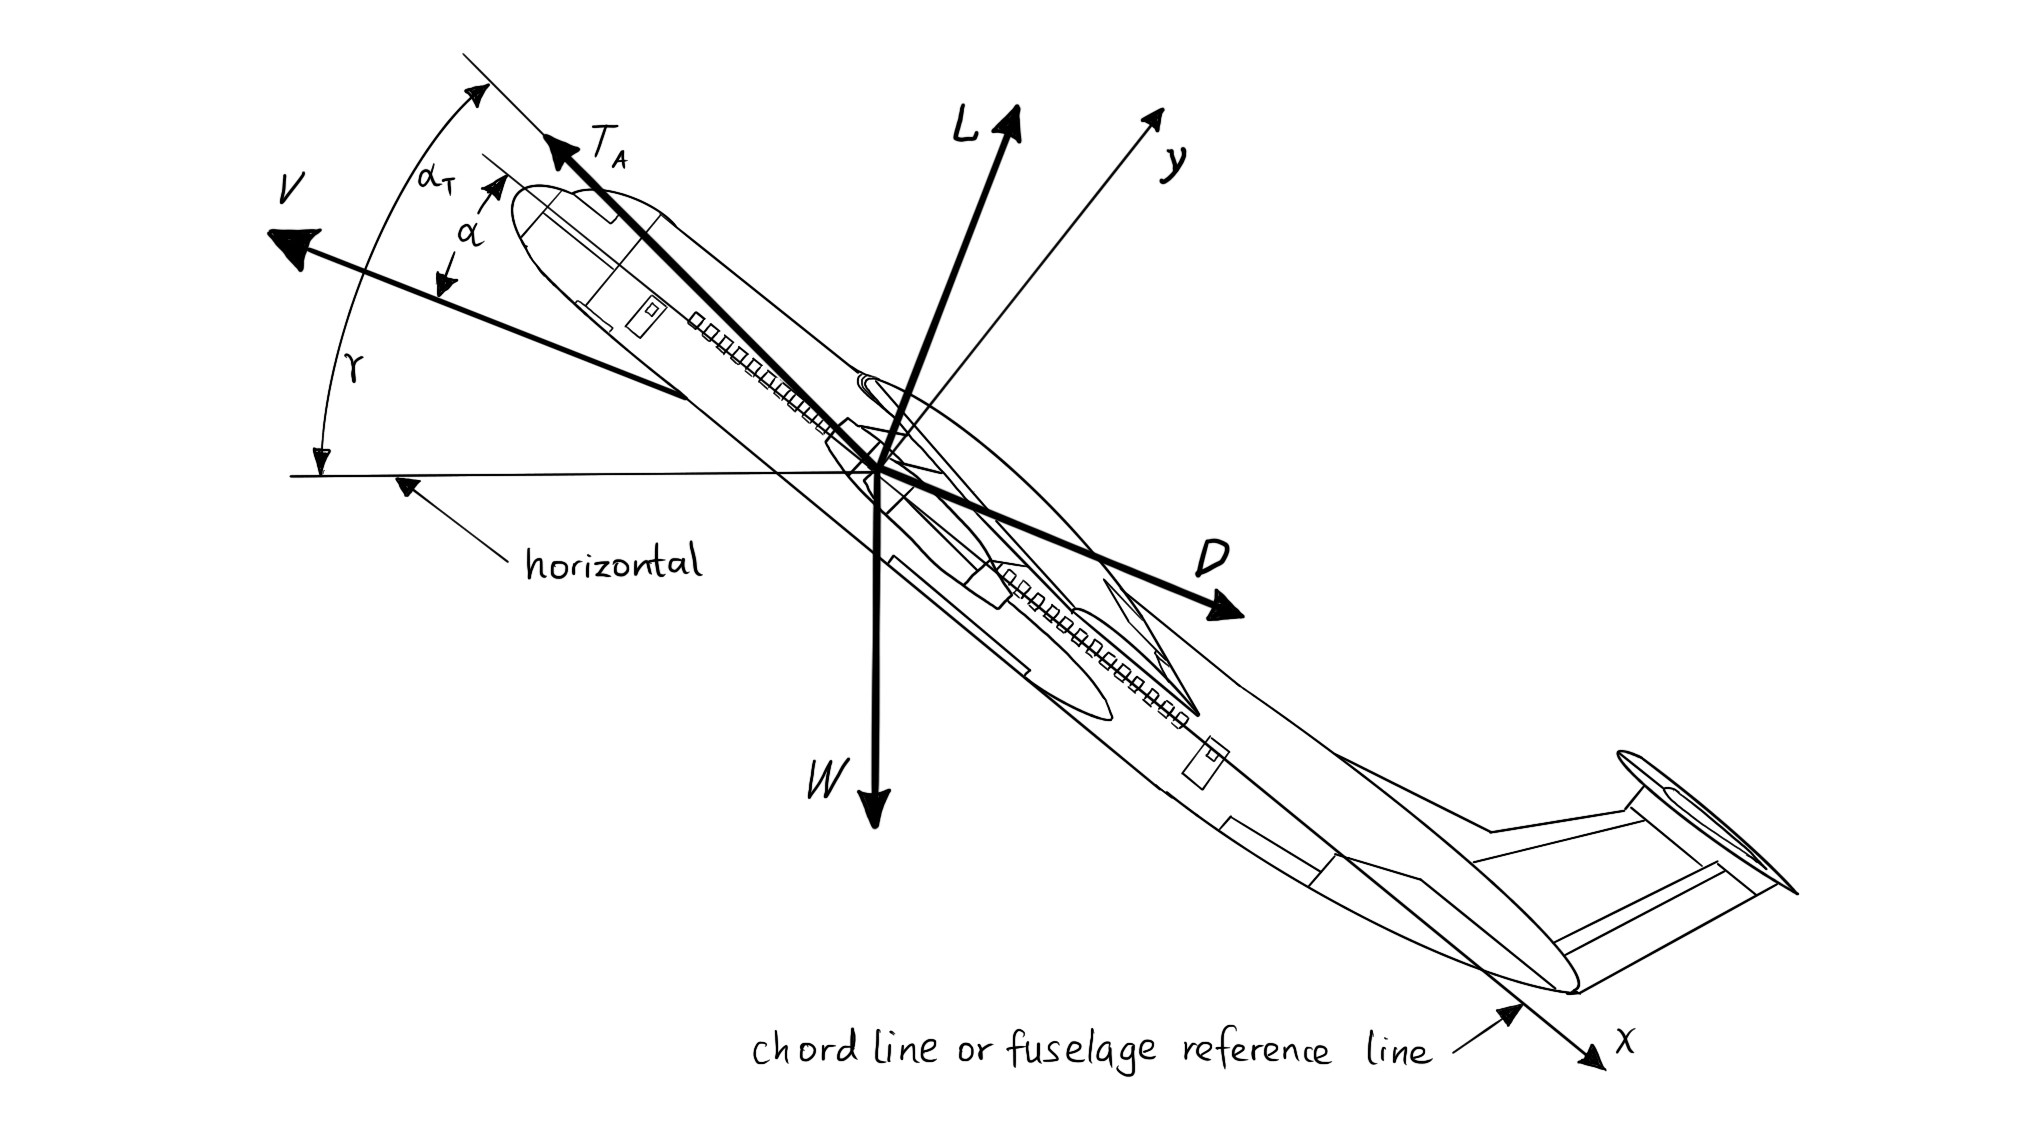 L
T_A
y
α_T
V
α
γ
D
horizontal
W
chord line or fuselage reference line
x